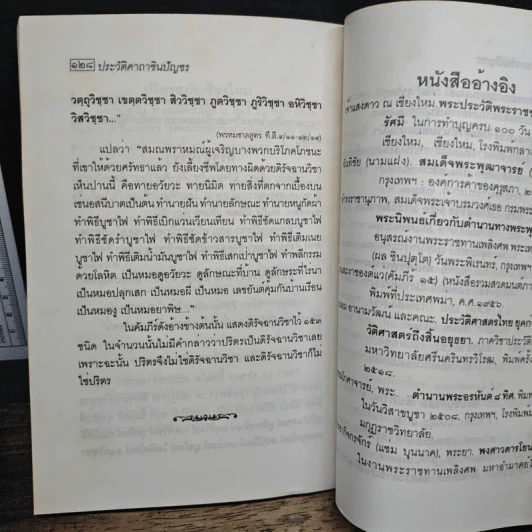 ๑๒๘ ประวัติคาถาชินบัญชร
วตฺถุวิชฺชา เขตฺตวิชฺชา สิววิชฺชา ภูตวิชฺชา ภูริวิชฺชา อหิวิชฺชา
วิสวิชฺชา..."
(พรหมชาลสูตร ที.สี.๙/๑๑-๑๒/๑๙)
แปลว่า "สมณพราหมณ์ผู้เจริญบางพวกบริโภคโภชนะ
ที่เขาให้ด้วยศรัทธาแล้ว ยังเลี้ยงชีพโดยทางผิดด้วยดิรัจฉานวิชา
เห็นปานนี้ คือทายอวัยวะ ทายนิมิต ทายสิ่งที่ตกจากเบื้องบน
เช่นอสนีบาตเป็นต้น ทำนายฝัน ทำนายลักษณะ ทำนายหนูกัดผ้า
ทำพิธีบูชาไฟ ทำพิธีเบิกแว่นเวียนเทียน ทำพิธีซัดแกลบบูชาไฟ
ทำพิธีซัดรำบูชาไฟ ทำพิธีซัดข้าวสารบูชาไฟ ทำพิธีเติมเนย
บูชาไฟ ทำพิธีเติมน้ำมันบูชาไฟ ทำพิธีเสกเป่าบูชาไฟ ทำพลีกรรม
ด้วยโลหิต เป็นหมอดูอวัยวะ ดูลักษณะที่บ้าน ดูลักษณะที่ไร่นา
เป็นหมอปลุกเสก เป็นหมอผี เป็นหมอ เลขยันต์คุ้มกันบ้านเรือน
เป็นหมองู เป็นหมอยาพิษ..."
ในคัมภีร์ดังอ้างข้างต้นนั้น แสดงดิรัจฉานวิชาไว้ ๑๕๓
ชนิด ในจำนวนนั้นไม่มีคำกล่าวว่าปริตรเป็นดิรัจฉานวิชาเลย
เพราะฉะนั้น ปริตรจึงไม่ใช่ดิรัจฉานวิชา และดิรัจฉานวิชาก็ไม่
ใช่ปริตร
หนังสืออ้างอิง
ณ เชียงใหม่ พระประวัติพระราช
รัศมี ในการทำบุญครบ ๑๐๐ วัน
เชียงใหม่, เชียงใหม่, โรงพิมพ์กลาง
(นามแฝง). สมเด็จพระพุฒาจารย์
กรุงเทพฯ : องค์การค้าของคุรุสภา, ๒
สมเด็จพระเจ้าบรมวงศ์เธอ กรมพระ
พระนิพนธ์เกี่ยวกับตำนานทางพระพุ
อนุสรณ์งานพระราชทานเพลิงศพ พระเทพ
(ผล ชินปุตฺโต) วันพระพิเรนทร์, กรุงเทพ
(คัมภีร์ ๑๕) (หนังสือรวมสวดมนต์ภา
พิมพ์ที่ประเทศพม่า, ค.ศ.๑๙๕๖.
อานามวัฒน์ และคณะ. ประวัติศาสตร์ไทย ยุค
วัติศาสตร์ถึงสิ้นอยุธยา. ภาควิชาประวั
มหาวิทยาลัยศรีนครินทรวิโรฒ, พิมพ์ครั้ง
๒๕๑๘.
พระ. ตำนานพระอรหันต์ ๘ ทิศ. พิมพ์
ในวันวิสาขบูชา ๒๕๐๘, กรุงเทพฯ, โรงพิมพ์
มกุฏราชวิทยาลัย.
(แช่ม บุนนาค), พระยา. พงศาวดารโยน
ในงานพระราชทานเพลิงศพ มหาอำมาตย์